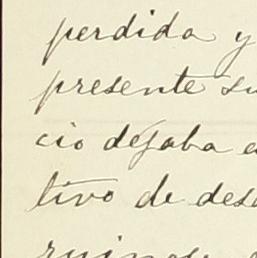 perdida y
presente su
cio dejaba e
tivo de des